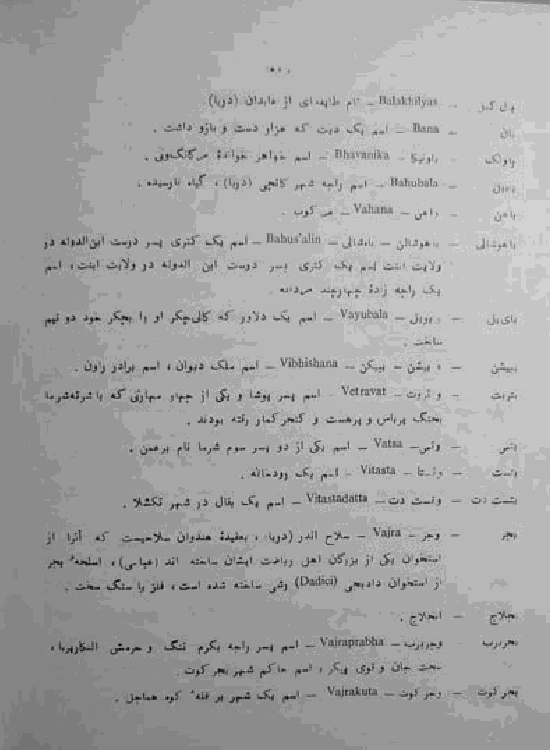 Balakhilyas — نام طایفه‌ای از عابدان (دریا)
بان — Bana — اسم یک دیت که هزار دست و بازو داشت .
Bhavanika — اسم خواهر خواندهٔ
Bahubala — اسم راجه شهر کانچی (دریا) ، گیاه نارسیده .
باهن — واهن — Vahana — مر کوب .
باهوشالی — باهوشالن — باهشالی — Bahus'alin — اسم یک کتری پسر دوست ابن الدوله در
ولایت ابنت اسم یک کتری پسر دوست ابن الدوله در ولایت ابنت ، اسم
یک راجه زادهٔ
بای‌بل — Vayubala — اسم یک دلاور که او را بچکر خود دو نیم
ساخت .
ببیشن — Vibhishana — اسم ملک دیوان ، اسم برادر راون .
Vetravat — اسم پسر پوشا و یکی از چهار
بجنگ و پرهست و رفته بودند .
بتس — وتس — Vatsa — اسم یکی از دو پسر سوم شرما نام برهمن .
بتست — وتستا — Vitasta — اسم یک رودخانه .
بتست دت — وتست دت — Vitastadatta — اسم یک بقال در شهر تکشلا .
بجر — وجر — Vajra — سلاح اندر (دریا) ، بعقیدهٔ هندوان سلاحیست که آنرا از
استخوان یکی از بزرگان اهل ریاضت ایشان ساخته اند (عیاسی) ، اسلحهٔ بجر
از استخوان دادیچی (Dadici) رشی ساخته شده است ، فلز یا سنگ سخت .
بجلاج — لجلاج .
بجرپرب — وجرپرب — Vajraprabha — اسم پسر راجه بکرم تنگ و
سخت جان و قوی پیکر ، اسم حاکم شهر بجر کوت .
بجر کوت — وجر کوت — Vajrakuta — اسم یک شهر بر قلهٔ کوه هماچل .